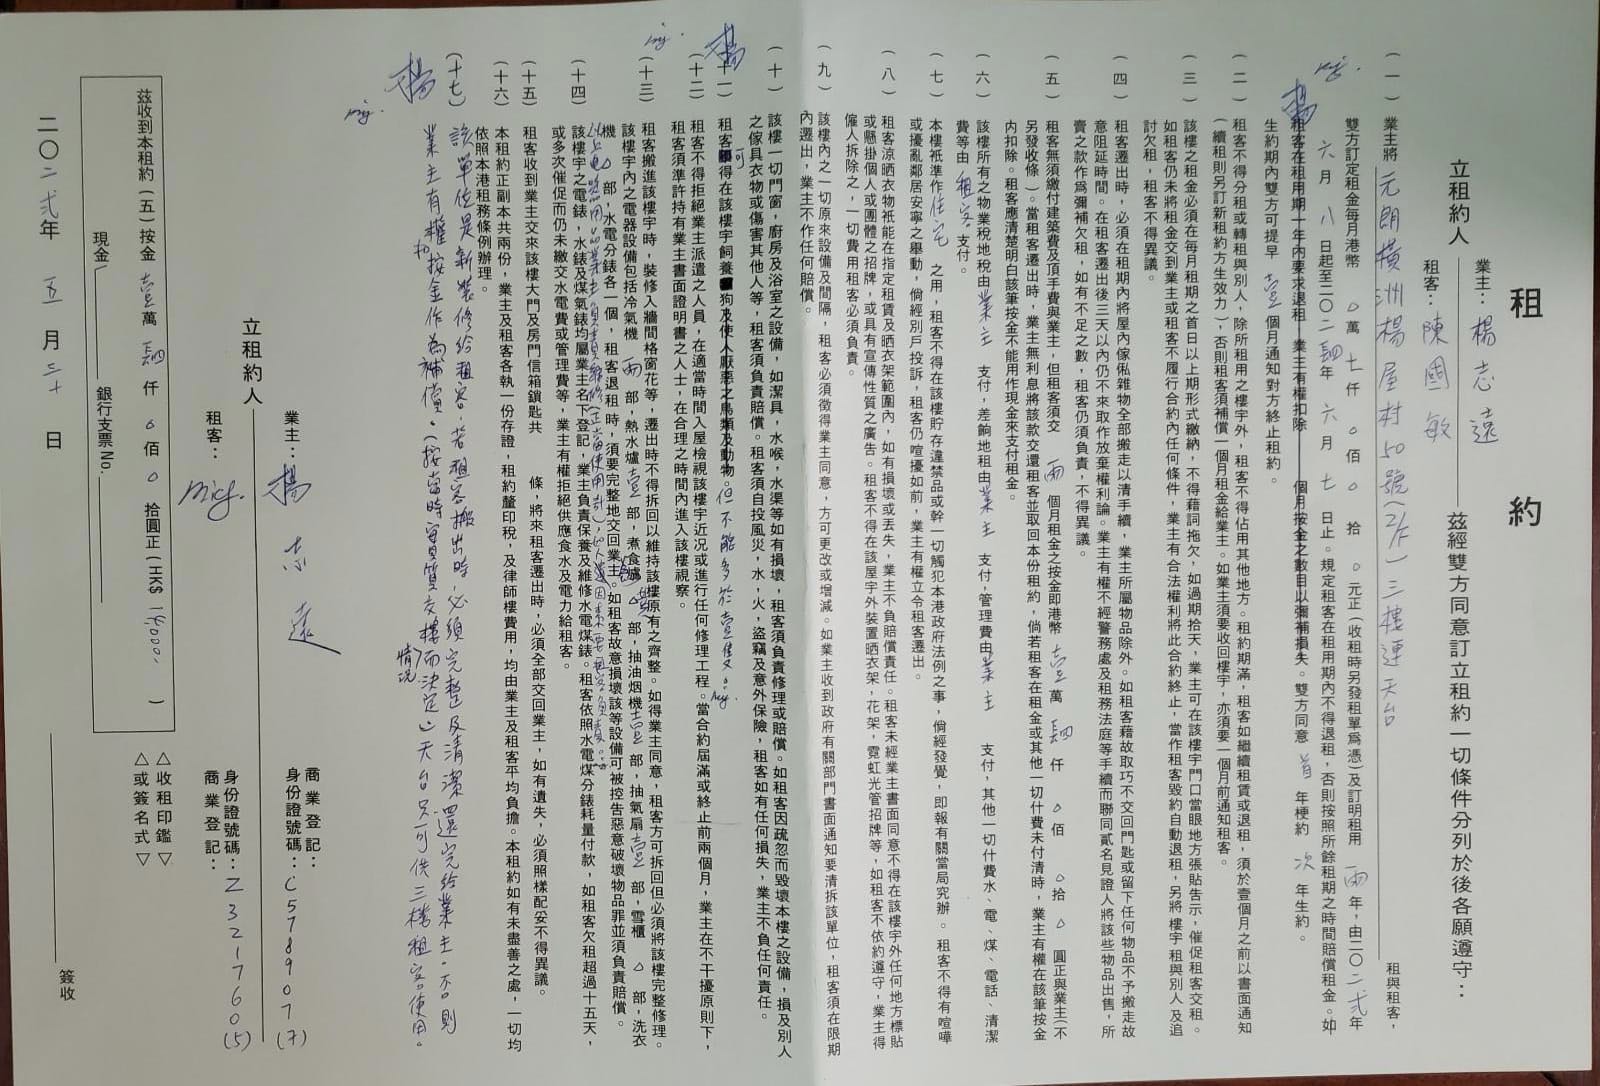 租約
立租約人
業主：楊志遠
租客：陳國敏
茲經雙方同意訂立租約一切條件分列於後各願遵守：
(一) 業主將元朗橫洲楊屋村50號(2/F)三樓連天台 租與租客，
雙方訂定租金每月港幣 0萬七仟0佰0拾0元正(收租時另發租單為憑)及訂明租用兩年，由二〇二弍年
六月八日起至二〇二四年六月七日止。規定租客在租用期內不得退租，否則按照所餘租期之時間賠償租金。如
租客在租用期一年內要求退租，業主有權扣除 個月按金之數目以彌補損失。雙方同意首年梗約次年生約。
生約期內雙方可提早壹個月通知對方終止租約。
(二) 租客不得分租或轉租與別人，除所租用之樓宇外，租客不得佔用其他地方。租約期滿，租客如繼續租賃或退租，須於壹個月之前以書面通知
(續租則另訂新租約方生效力)，否則租客須補償一個月租金給業主。如業主須要收回樓宇，亦須要一個月前通知租客。
(三) 該樓之租金必須在每月租期之首日以上期形式繳納，不得藉詞拖欠，如過期拾天，業主可在該樓宇門口當眼地方張貼告示，催促租客交租。
如租客仍未將租金交到業主或租客不履行合約內任何條件，業主有合法權利將此合約終止，當作租客毀約自動退租，另將樓宇租與別人及追
討欠租，租客不得異議。
(四) 租客遷出時，必須在租期內將屋內傢俬雜物全部搬走以清手續，業主所屬物品除外。如租客藉故取巧不交回門匙或留下任何物品不予搬走故
意阻延時間。在租客遷出後三天以內仍不來取作放棄權利論。業主有權不經警務處及租務法庭等手續而聯同貳名見證人將該些物品出售，所
賣之款作為彌補欠租，如有不足之數，租客仍須負責，不得異議。
(五) 租客無須繳付建築費及頂手費與業主，但租客須交 兩個月租金之按金即港幣 壹萬四仟0佰0拾0圓正與業主(不
另發收條)。當租客遷出時，業主無利息將該款交還租客並取回本份租約，倘若租客在租金或其他一切什費未付清時，業主有權在該筆按金
內扣除。租客應清楚明白該筆按金不能用作現金來支付租金。
(六) 該樓所有之物業稅地稅由業主支付，差餉地租由業主支付，管理費由業主 支付，其他一切什費水、電、煤、電話、清潔
費等由租客支付。
(七) 本樓衹準作住宅之用，租客不得在該樓貯存違禁品或幹一切觸犯本港政府法例之事，倘經發覺，即報有關當局究辦。租客不得有喧嘩
或擾亂鄰居安寧之舉動，倘經別戶投訴，租客仍喧擾如前，業主有權立令租客遷出。
(八) 租客涼晒衣物衹能在指定租賃及晒衣架範圍內，如有損壞或丟失，業主不負賠償責任。租客未經業主書面同意不得在該樓宇外任何地方標貼
或懸掛個人或團體之招牌，或具有宣傳性質之廣告。租客不得在該屋宇外裝置晒衣架，花架，霓虹光管招牌等，如租客不依約遵守，業主得
僱人拆除之，一切費用租客必須負責。
(九) 該樓內之一切原來設備及間隔，租客必須徵得業主同意，方可更改或增減。如業主收到政府有關部門書面通知要清拆該單位，租客須在限期
內遷出，業主不作任何賠償。
(十) 該樓一切門窗，廚房及浴室之設備，如潔具，水喉，水渠等如有損壞，租客須負責修理或賠償。如租客因疏忽而毀壞本樓之設備，損及別人
之傢具衣物或傷害其他人等，租客須負責賠償。租客須自投風災，水，火，盜竊及意外保險，租客如有任何損失，業主不負任何責任。
(十一) 租客可得在該樓宇飼養狗及使人厭惡之鳥類及動物。但不能多於壹隻。
(十二) 租客不得拒絕業主派遣之人員，在適當時間入屋檢視該樓宇近況或進行任何修理工程。當合約屆滿或終止前兩個月，業主在不干擾原則下，
租客須準許持有業主書面證明書之人士，在合理之時間內進入該樓視察。
(十三) 租客搬進該樓宇時，裝修入牆間格窗花等，遷出時不得拆回以維持該樓原有之齊整。如得業主同意，租客方可拆回但必須將該樓完整修理。
該樓宇內之電器設備包括冷氣機兩部，熱水爐壹部，煮食爐0部，抽油烟機壹部，抽氣扇壹部，雪櫃0部，洗衣
機0部，水電分錶各一個，租客退租時，須要完整地交回業主。如租客故意損壞該等設備可被控告惡意破壞物品罪並須負責賠償。
以上電器用品業主負責維修(正當使用計)，如人為因素要租客負責。
(十四) 該樓宇之電錶，水錶及煤氣錶均屬業主名下登記，業主負責保養及維修水電煤錶。租客依照水電煤分錶耗量付款，如租客欠租超過十五天，
或多次催促而仍未繳交水電費或管理費等，業主有權拒絕供應食水及電力給租客。
(十五) 租客收到業主交來該樓大門及房門信箱鎖匙共 條，將來租客遷出時，必須全部交回業主，如有遺失，必須照樣配妥不得異議。
(十六) 本租約正副本共兩份，業主及租客各執一份存證，租約釐印稅，及律師樓費用，均由業主及租客平均負擔。本租約如有未盡善之處，一切均
依照本港租務條例辦理。
(十七) 該單位是新裝修給租客，若租客搬出時，必須完整及清潔還完給業主，否則
業主有權扣按金作為補償。(按當時實質交樓情況而決定)天台只可供三樓租客使用。
立租約人
業主：楊志遠
租客：
商業登記：
身份證號碼：C578907(7)
身份證號碼：Z321760(5)
商業登記：
△收租印鑑▽
△或簽名式▽
茲收到本租約(五)按金 壹萬四仟0佰0拾圓正(HK$ 14000.)
現金
銀行支票No.
簽收
二〇二弍年 五月三十日